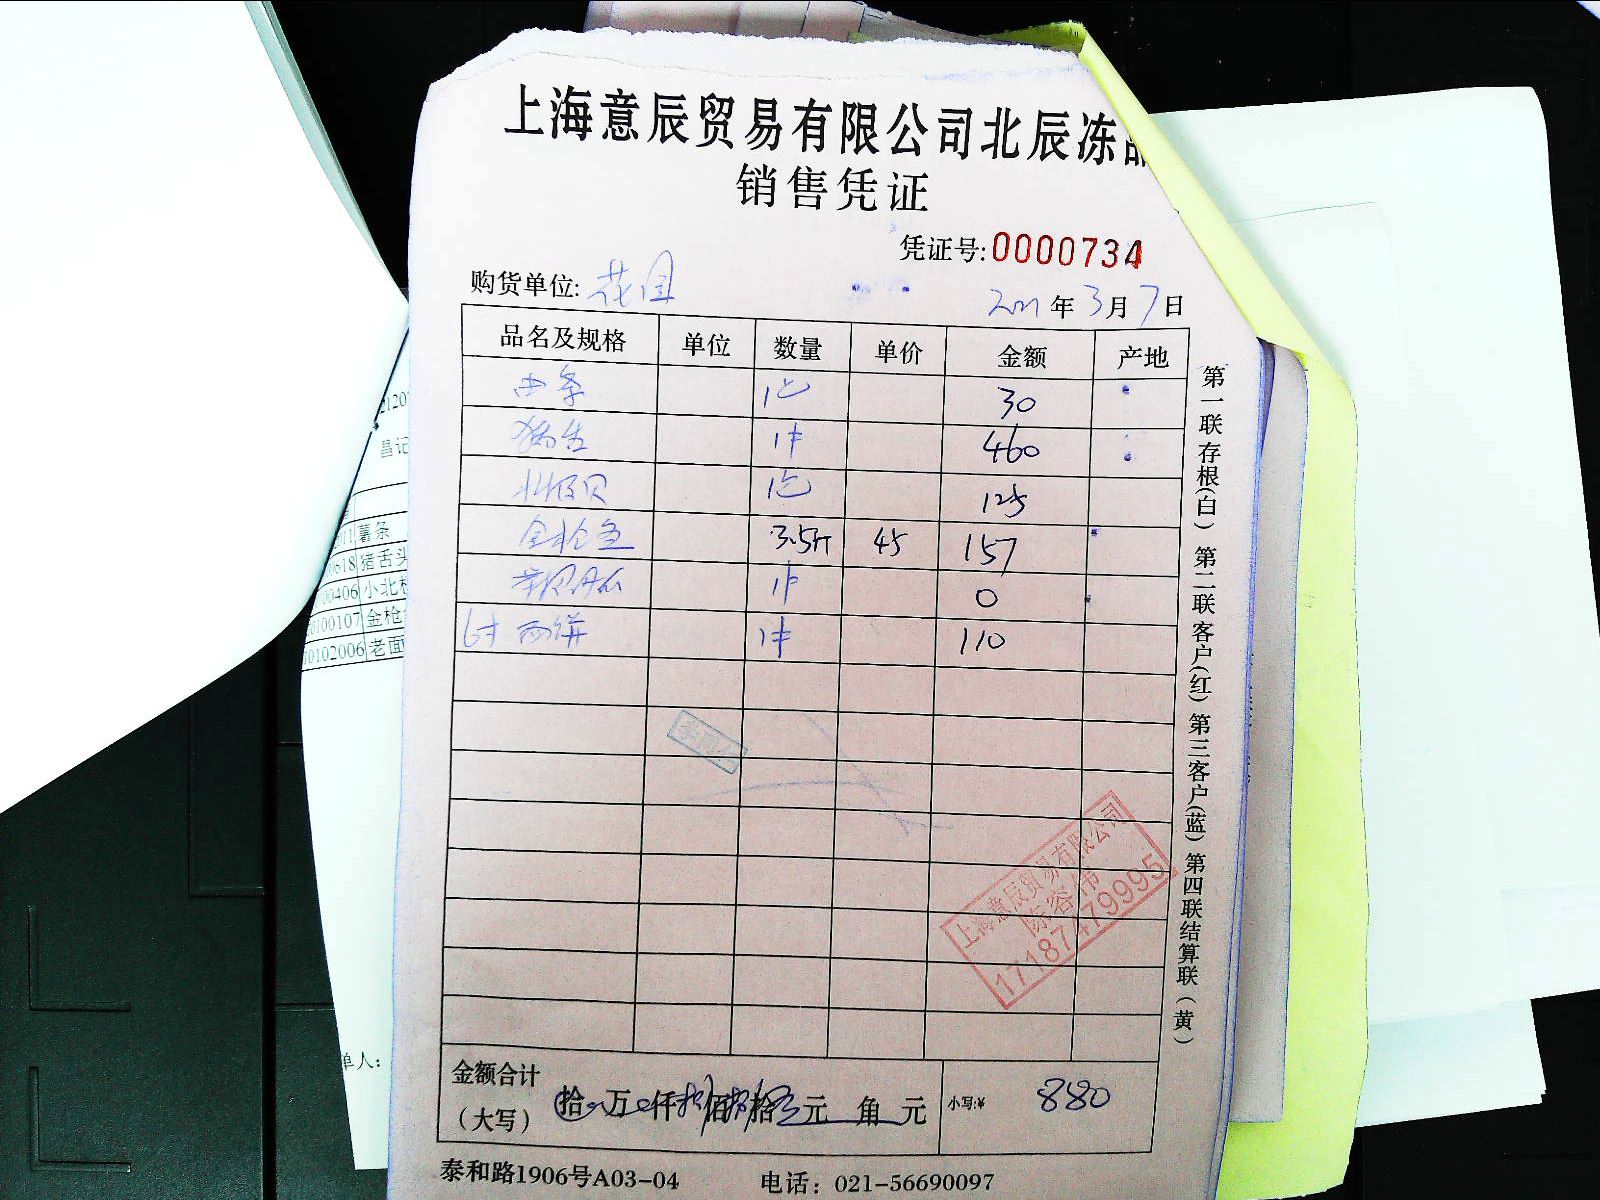 上海意辰贸易有限公司北辰冻品
销售凭证
凭证号:0000734
购货单位: 花园
年 3 月 7 日
品名及规格 单位 数量 单价 金额 产地
1包 30
1件 460
1包 125
金枪鱼 3.5斤 45 157
1件 0
6寸 面饼 1件 110
金额合计
(大写) 拾 万 仟 佰 拾 元 角 元 小写:¥ 880
泰和路1906号A03-04 电话: 021-56690097
第一联存根(白) 第二联客户(红) 第三客户(蓝) 第四联结算联(黄)
上海意辰贸易有限公司
17187479995
昌记
薯条
0618 猪舌头
00406 小北极
0100107 金枪
0102006 老面
单人: